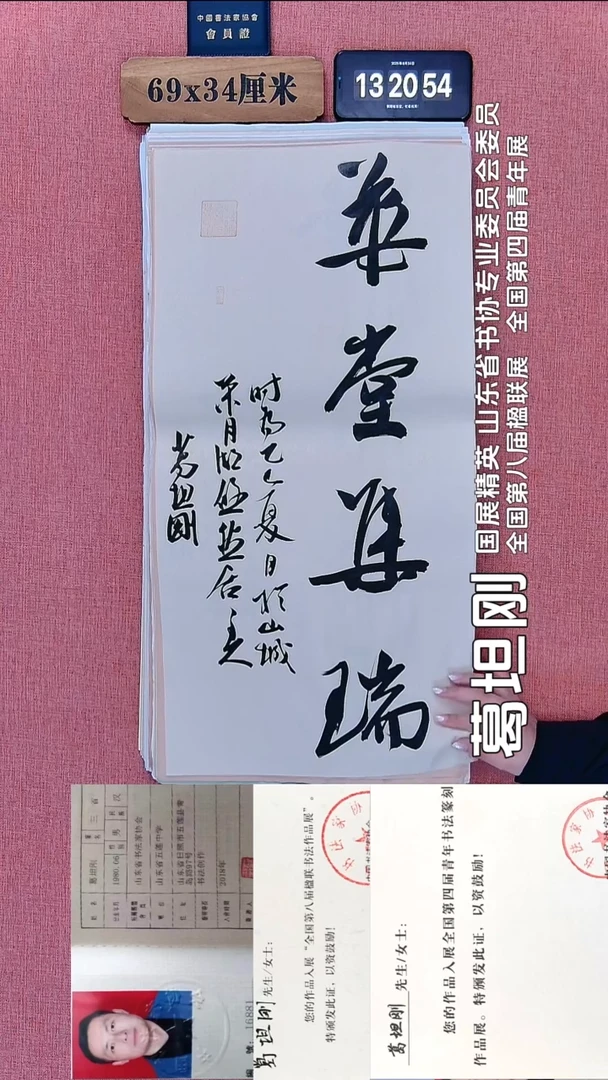 中國書法家協會
會員證
69x34厘米
13 20 54
華堂集瑞
时为乙巳夏日于山城
葛坦刚
葛坦刚
国展精英 山东省书协专业委员会委员
全国第八届楹联展 全国第四届青年展
葛坦刚
1980.06
男
汉
山东省书法家协会
山东省五莲中学
书法创作
2018年
葛坦刚 先生/女士:
您的作品入展“全国第八届楹联书法作品展”。
特颁发此证,以资鼓励!
葛坦刚 先生/女士:
您的作品入展全国第四届青年书法篆刻
作品展。特颁发此证,以资鼓励!